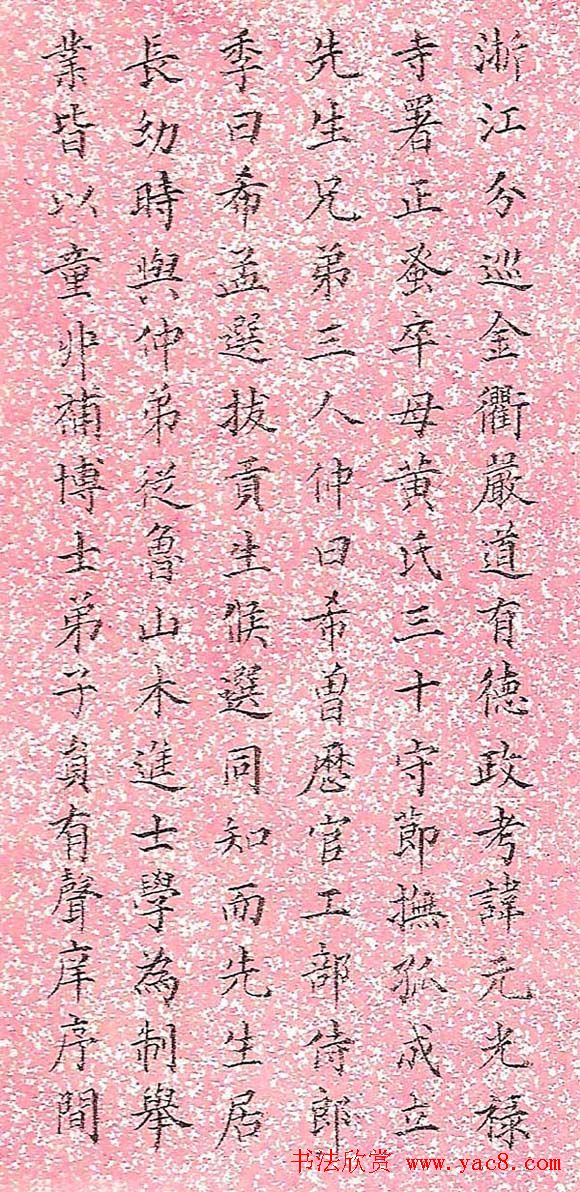 浙江分巡金衢嚴道有德政考諱元光祿
寺署正蚤卒母黄氏三十守節撫孤成立
先生兄弟三人仲曰希曾歷官工部侍郎
季曰希孟選拔貢生候選同知而先生居
長幼時與仲弟從魯山木進士學為制舉
業皆以童丱補博士弟子員有聲庠序間
书法欣赏 www.yac8.com